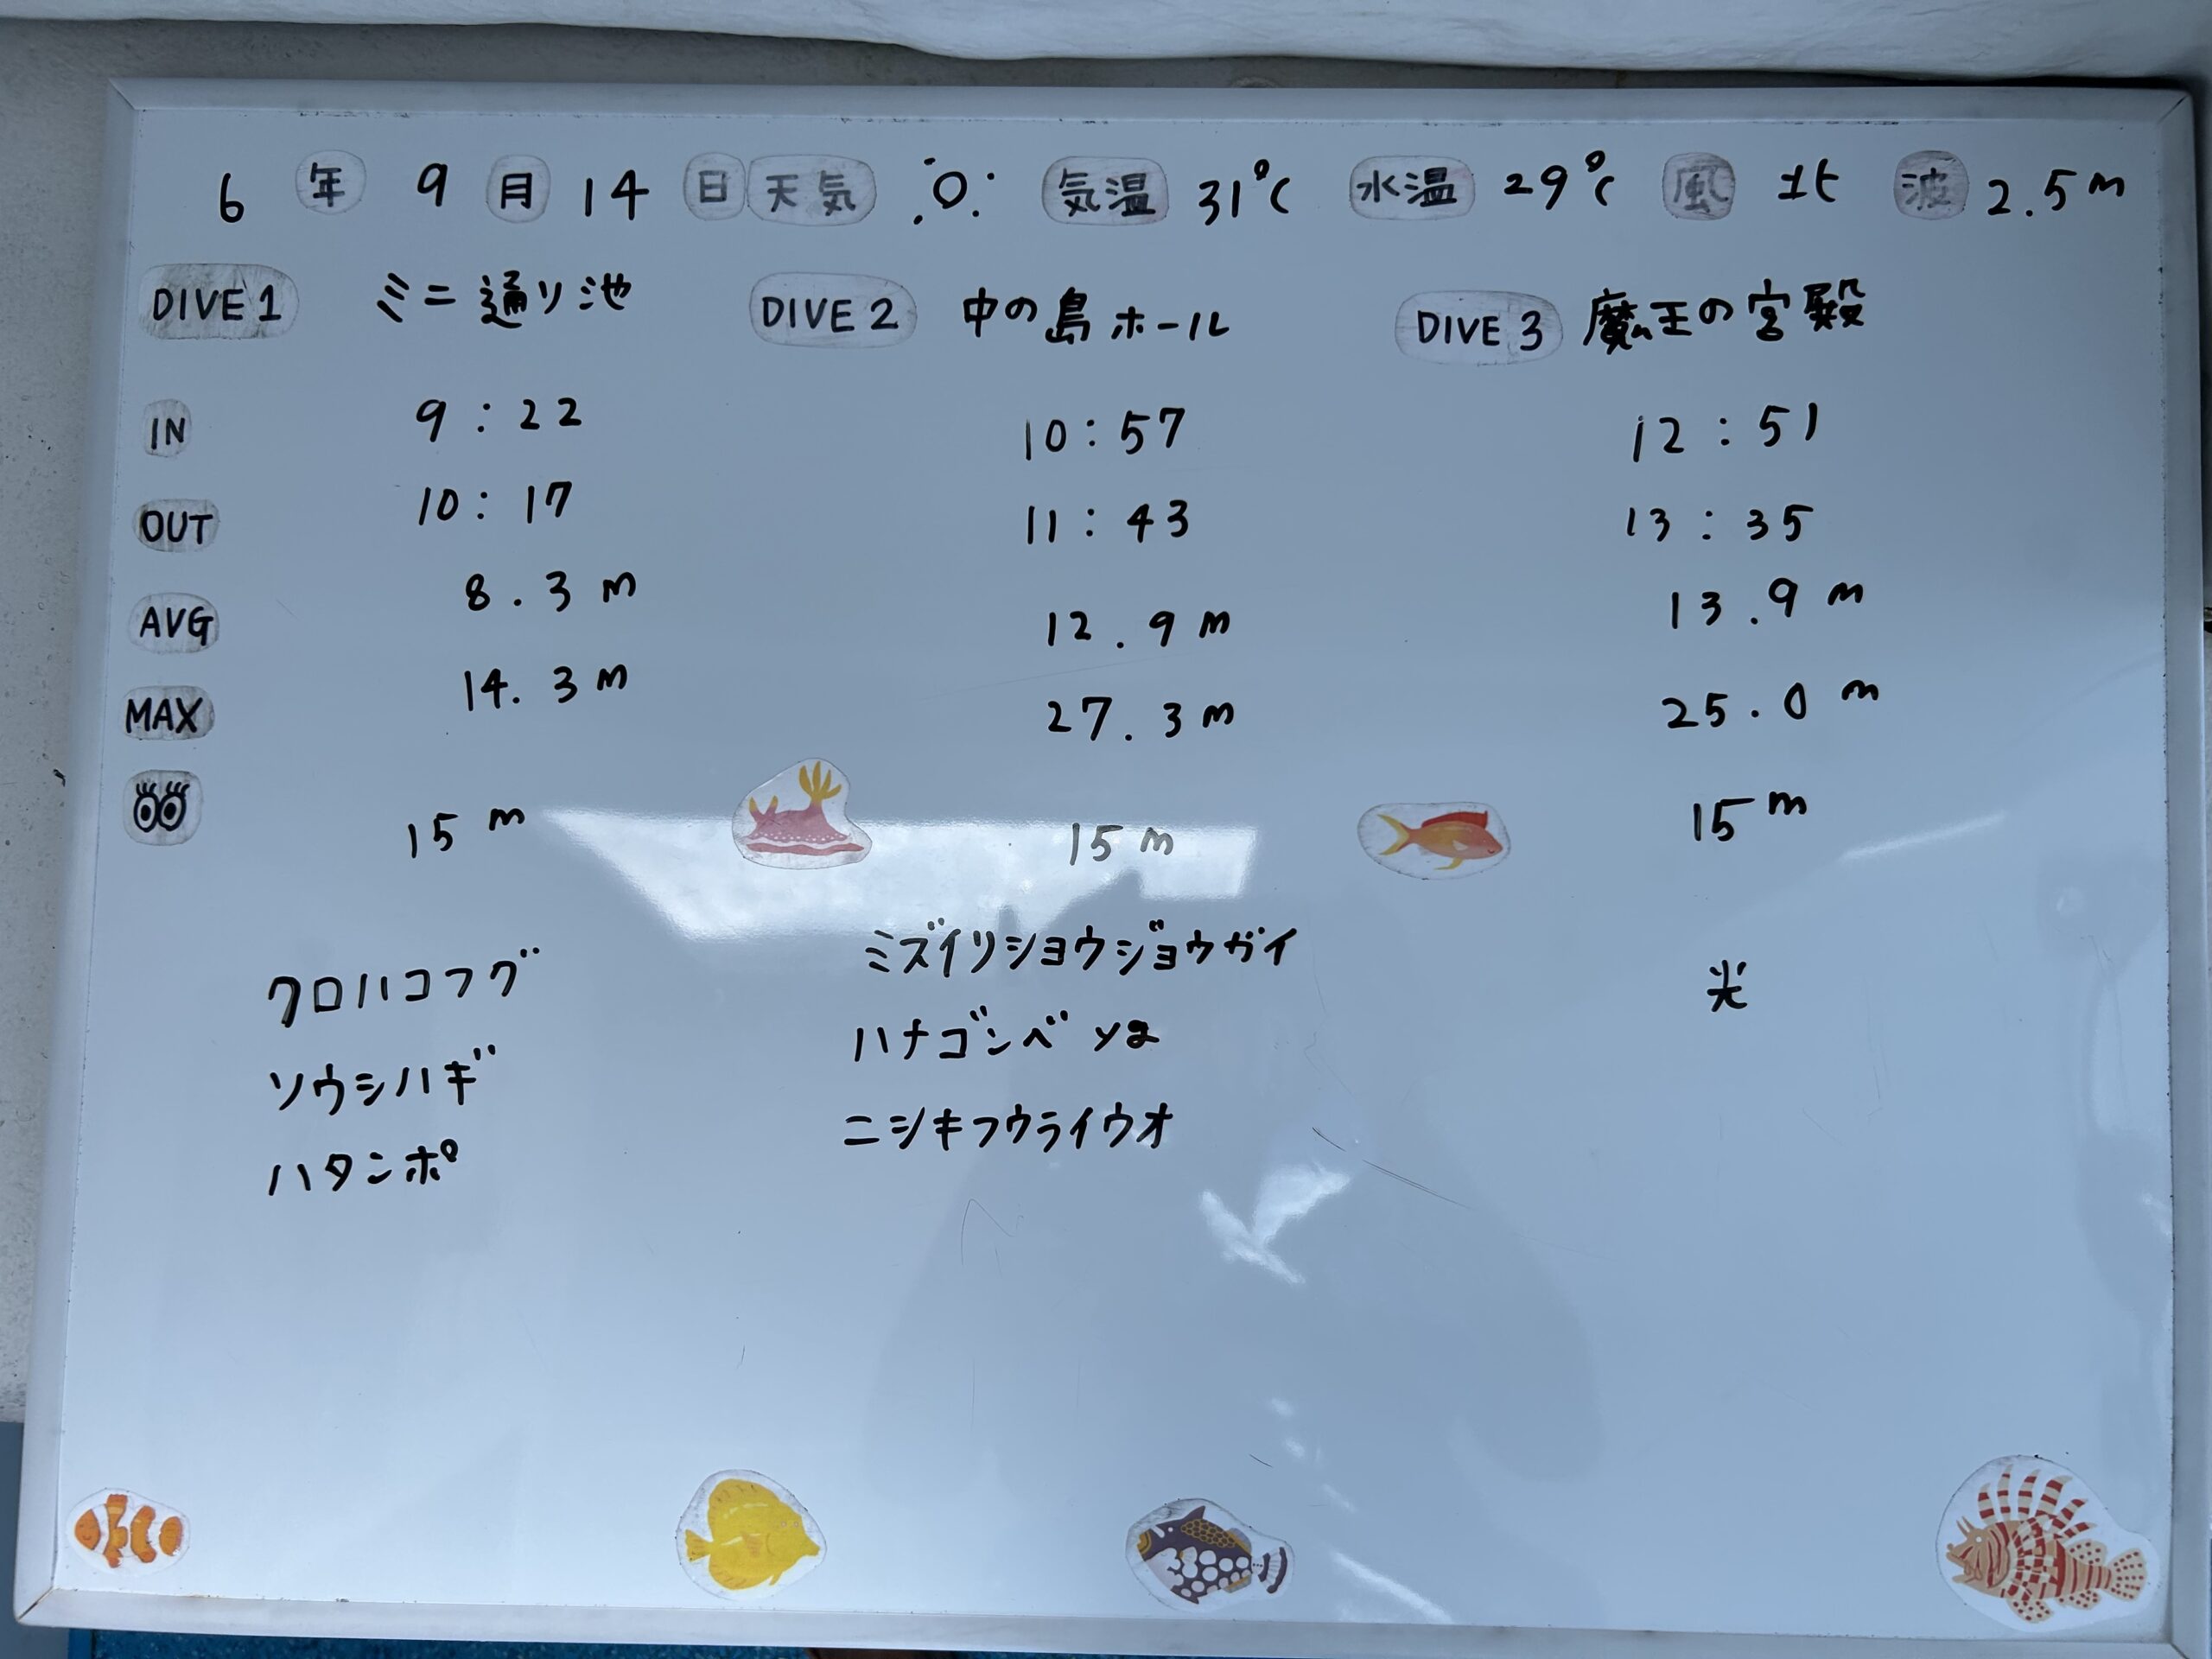 6年 9月 14日 天気 気温 31℃ 水温 29℃ 風 北 波 2.5m
DIVE 1 ミニ通り池 DIVE 2 中の島ホール DIVE 3 魔王の宮殿
IN 9:22 10:57 12:51
OUT 10:17 11:43 13:35
AVG 8.3m 12.9m 13.9m
MAX 14.3m 27.3m 25.0m
15m 15m 15m
クロハコフグ ミズイリショウジョウガイ 光
ソウシハギ ハナゴンベ yg
ハタンポ ニシキフウライウオ